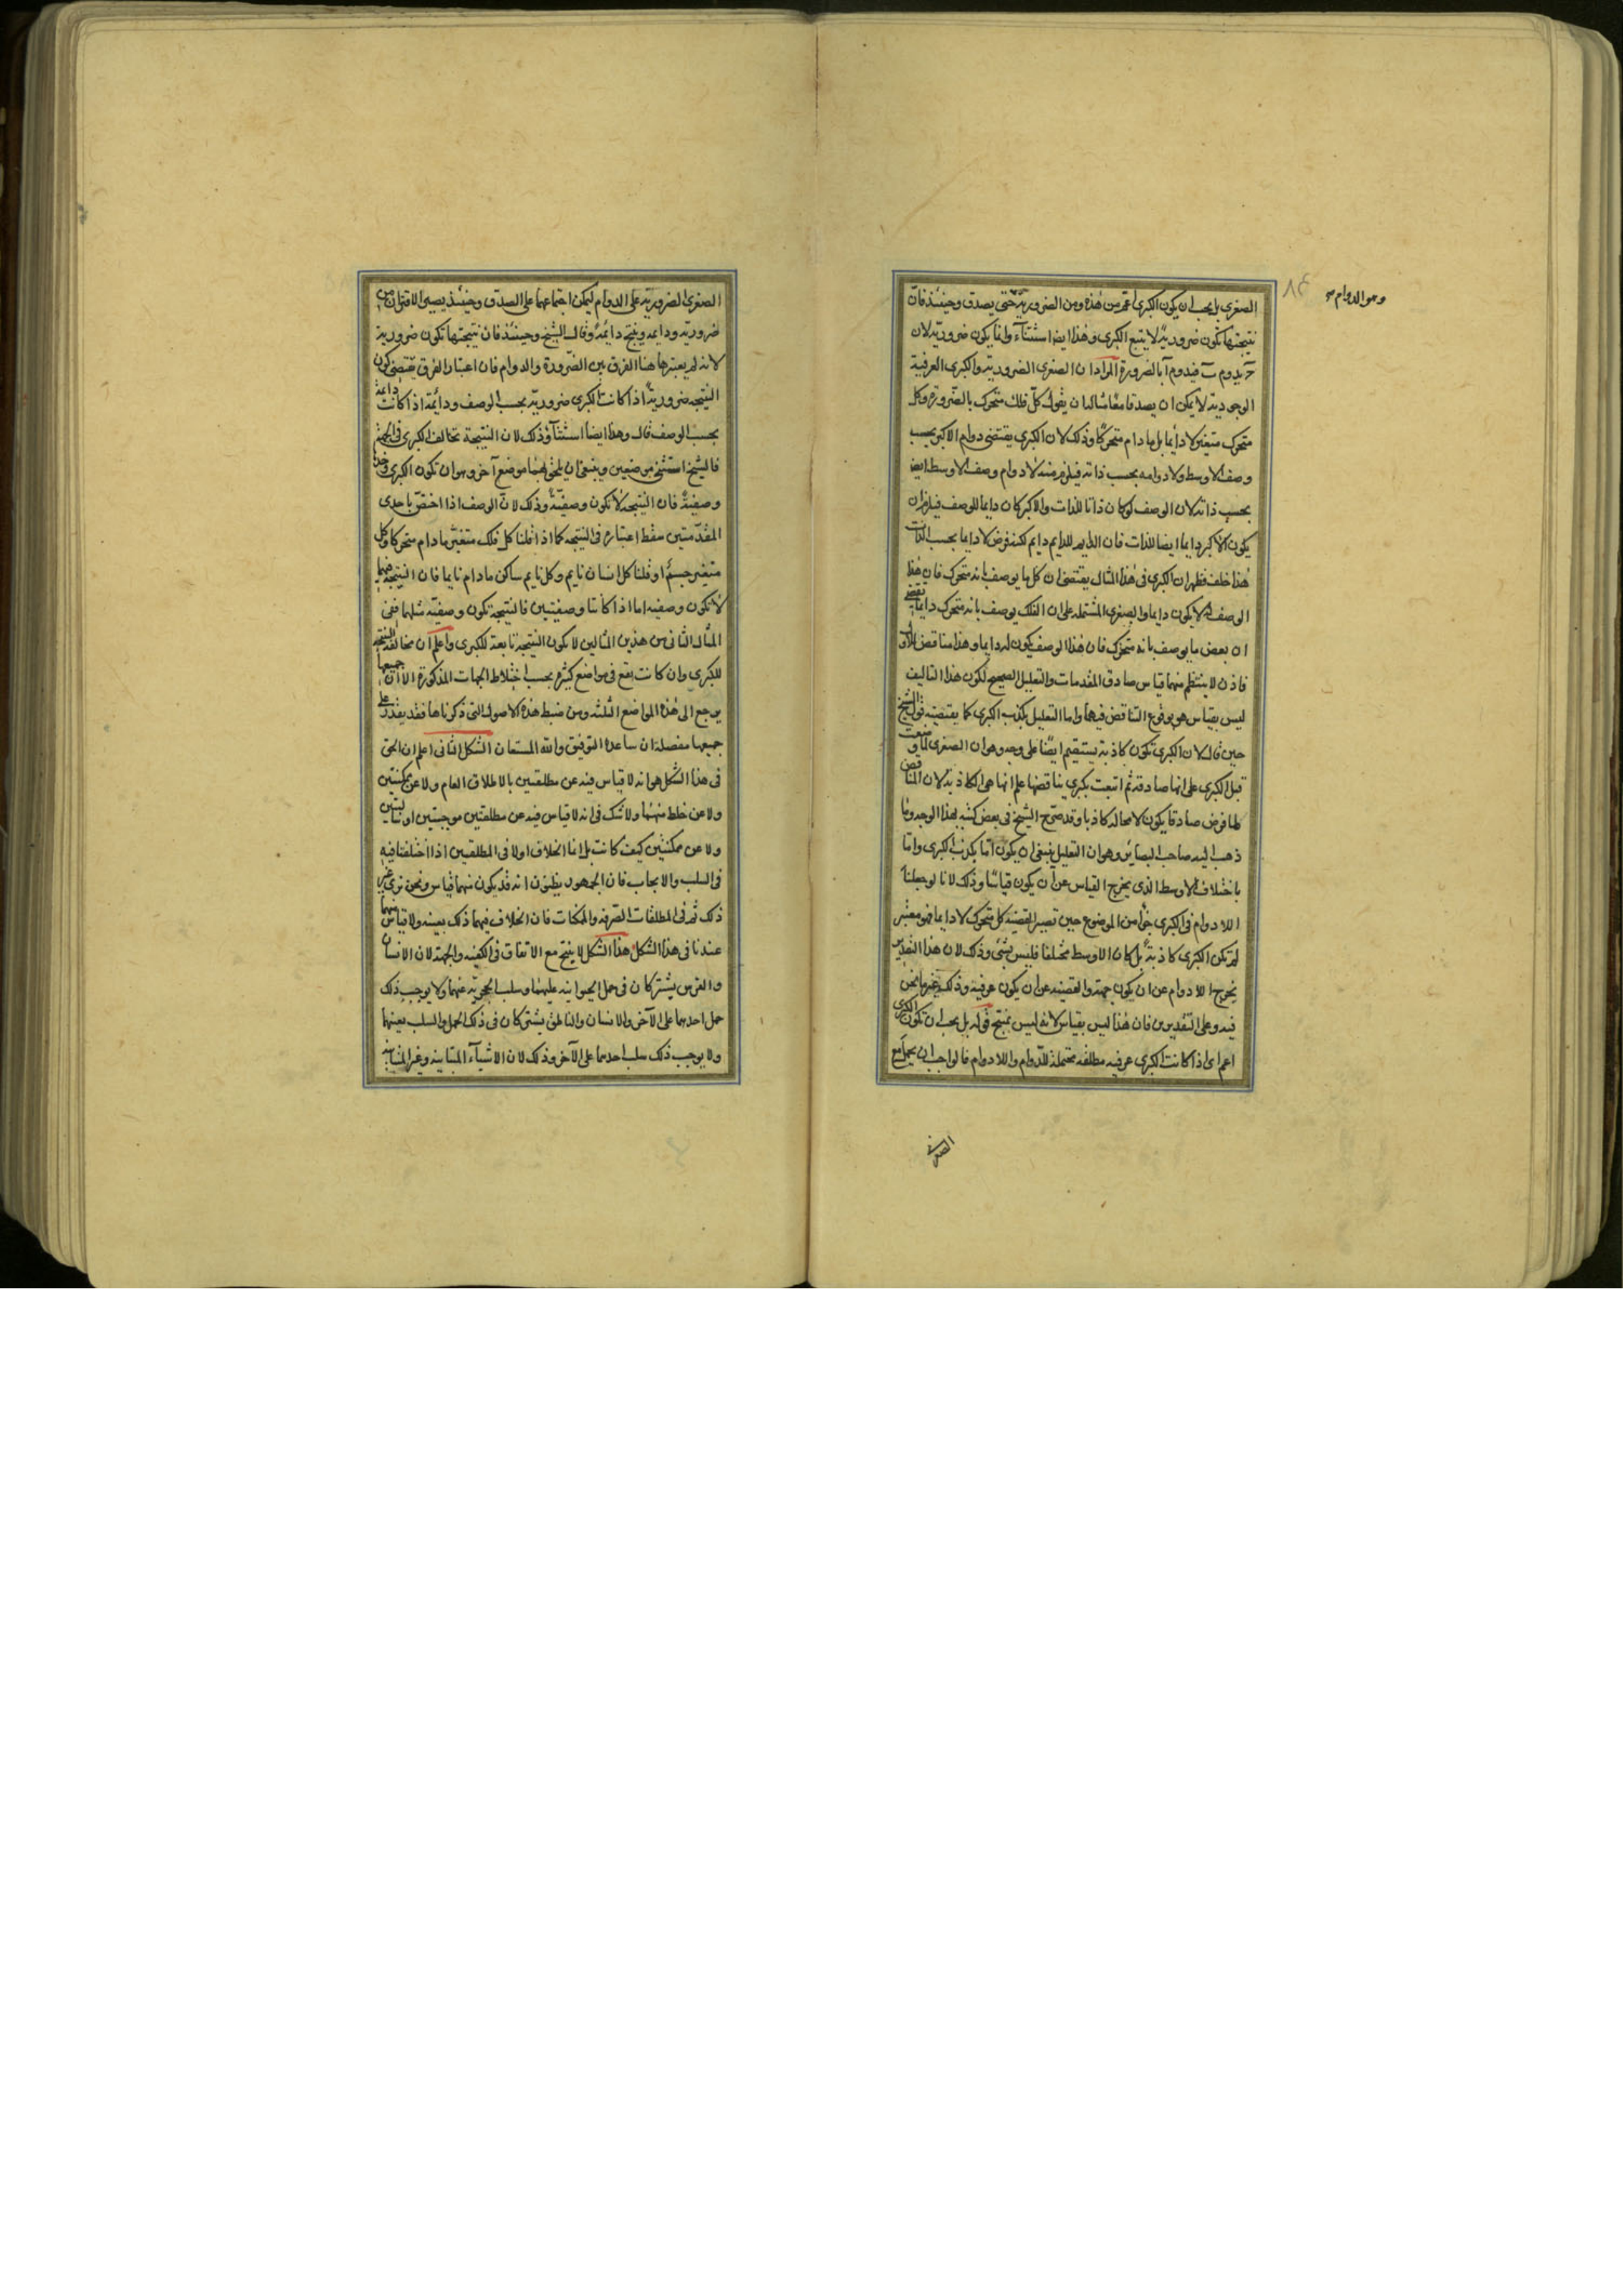 الصغرى بل يجب ان يكون الكبرى اعمّ من هذه ومن الضرورية حتى يصدق وحينئذ فانّ
نتيجتها تكون ضروريةً لا يتبع الكبرى وهذا ايضا استثناء وانما يكون ضرورية لان
يدوم فيدوم آ بالضرورة المراد ان الصغرى الضرورية والكبرى العرفية
الوجودية لا يمكن ان يصدقا معا مثاله ان يقول كلّ فلك متحرك بالضرورة وكل
متحرك متغير لا دائما بل ما دام متحركا وذلك لان الكبرى يقتضى دوام الاكبر بحسب
وصف الاوسط ولا دوامه بحسب ذاته فيلزم منه لا دوام وصف الاوسط ايضا
بحسب ذاته لان الوصف لو كان دائما للذات والاكبر كان دايما للوصف فيلزم ان
يكون الاكبر دايما ايضا للذات فان الدايم للدايم دايم لكنه فرض لا دايما بحسب الذات
هذا خلف فظهر ان الكبرى فى هذا المثال يقتضى ان كل ما يوصف بانه متحرك فان هذا
الوصف له لا يكون دايما والصغرى المشتملة على ان الفلك يوصف بانه متحرك دايما يقتضى
ان بعض ما يوصف بانه متحرك فان هذا الوصف يكون له دايما وهذا مناقض للاول
فاذن لا ينتظم منهما قياس صادق المقدمات والتعليل الصحيح لكون هذا التاليف
ليس بقياس هو بوقوع التناقض فيها واما التعليل بكذب الكبرى كما يقتضيه قول الشيخ
حين قال لان الكبرى تكون كاذبة يستقيم ايضا على وجه وهو ان الصغرى لما وضعت
قبل الكبرى على انها صادقة ثم اتبعت بكبرى يناقضها علم انها هى الكاذبة لان المناقض
لما فرض صادقا يكون لا محالة كاذبا وقد صرّح الشيخ فى بعض كتبه بهذا الوجه وما
ذهب اليه صاحب البصائر وهو ان التعليل ينبغى ان يكون امّا بكذب الكبرى وامّا
باختلاف الاوسط الذى يخرج القياس عن ان يكون قياسا وذلك لانا لو جعلنا
اللا دوام فى الكبرى جزأ من الموضوع حين تصير القضية كل متحرك لا دايما فهو متغير
لم تكن الكبرى كاذبة بل كان الاوسط مختلفا فليس بشئ وذلك لان هذا التقدير
يخرج اللا دوام عن ان يكون جهة والقضية عن ان يكون عرفية وذلك غير ما نحن
فيه وعلى التقديرين فان هذا ليس بقياس لانه ليس بمنتج قوله بل يجب ان تكون الكبرى
اعم اى اذا كانت الكبرى عرفية مطلقه محتملة للدوام واللا دوام فالواجب ان يحمل مع
وهو الدوام
٨٤
الصغرى الضرورية على الدوام ليمكن اجتماعهما على الصدق وحينئذ يصير الاقتران من
ضرورية ودايمه وينتج دائمه وقال الشيخ وحينئذ فان نتيجتها تكون ضرورية
لانه لم يعتبر هاهنا الفرق بين الضرورة والدوام فان اعتبار الفرق يقتضى كون
النتيجة ضرورية اذا كانت الكبرى ضرورية بحسب الوصف ودائمة اذا كانت دائمة
بحسب الوصف قال وهذا ايضا استثنآء وذلك لان النتيجة تخالف الكبرى فى الجهة
فالشيخ استثنى موضعين وينبغى ان يلحق بهما موضع آخر وهو ان تكون الكبرى وحدها
وصفيةً فان النتيجة لا تكون وصفيّة وذلك لانّ الوصف اذا اختصّ باحدى
المقدّمتين سقط اعتباره فى النتيجه كما اذا قلنا كل فلك متغيّر ما دام متحركا وكل
متغير جسم او قلنا كل انسان نايم وكل نايم ساكن ما دام نايما فان النتيجة فيهما
لا تكون وصفيه اما اذا كانتا وصفيتين فالنتيجة تكون وصفيّة مثلهما ففى
المثال الثانى من هذين المثالين لا يكون النتيجة تابعة للكبرى واعلم ان مخالفة النتيجة
للكبرى وان كانت تقع فى مواضع كثيرة بحسب اختلاط الجهات المذكورة الا ان جميعها
يرجع الى هذه المواضع الثلثة ومن ضبط هذه الاصول التى ذكرناها فقد يقدر على
جميعها مفصلة ان ساعده التوفيق والله المستعان الشكل الثانى اعلم ان الحق
فى هذا الشكل هو انه لا قياس فيه عن مطلقتين بالاطلاق العام ولا عن ممكنتين
ولا عن خلط منهما ولا شك فى انه لا قياس فيه عن مطلقتين موجبتين او سالبتين
ولا عن ممكنتين كيف كانت بل انما الخلاف اولا فى المطلقتين اذا اختلفتا فيه
فى السلب والايجاب فان الجمهور يظنون انه قد يكون منهما قياس ونحن نرى غير
ذلك ثم فى المطلقات الصرفه والممكنات فان الخلاف فيهما ذلك بعينه ولا قياس منهما
عندنا فى هذا الشكل هذا الشكل لا ينتج مع الاتفاق فى الكيفيه والجهة لان الانسان
والفرس يشتركان فى حمل الحيوانيه عليهما وسلب الحجرية عنهما ولا يوجب ذلك
حمل احدهما على الآخر والانسان والناطق يشتركان فى ذلك الحمل والسلب بعينهما
ولا يوجب ذلك سلب احدهما على الآخر وذلك لان الاشيآء المتباينه وغير المتباينه